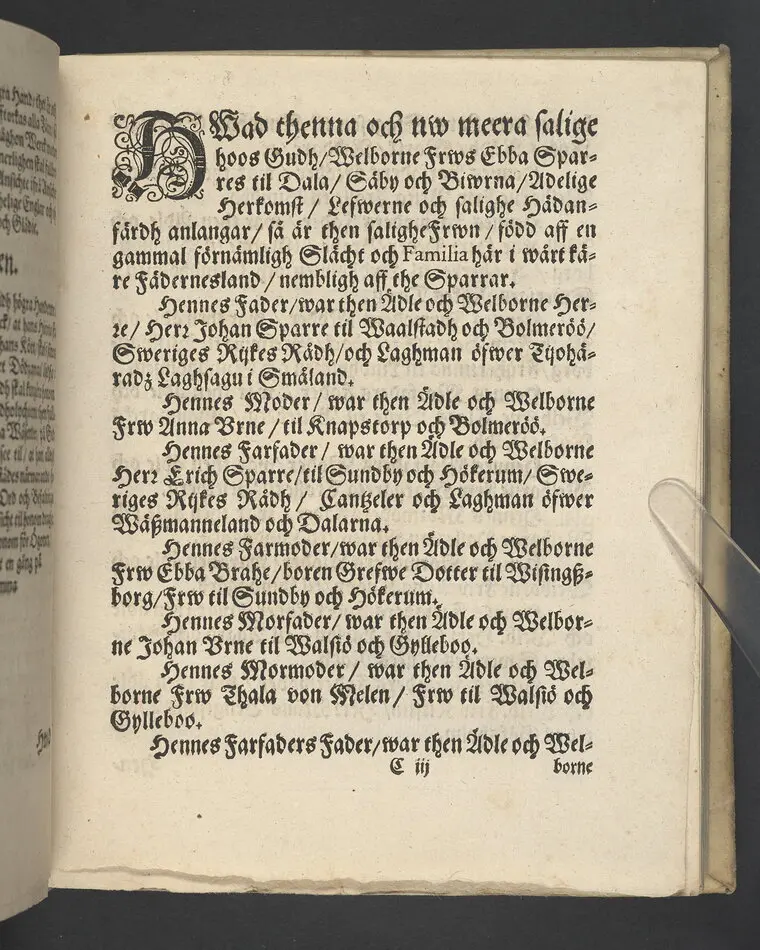 HWad thenna och nw meera salige
hoos Gudh/Welborne Frws Ebba Spar-
res til Dala/ Säby och Biwrna/Adelige
Herkomst/ Lefwerne och salighe Hädan-
färdh anlangar/ så är then salighe Frwn/ född aff en
gammal förnämligh Slächt och Familia här i wårt kä-
re Fädernesland/nembligh aff the Sparrar.
Hennes Fader/war then Ädle och Welborne Her-
re/ Herr Johan Sparre til Waalstadh och Bolmeröö/
Sweriges Rijkes Rådh/och Laghman öfwer Tijohä-
radz Laghsagu i Småland.
Hennes Moder/ war then Ädle och Welborne
Frw Anna Vrne/til Knapstorp och Bolmeröö.
Hennes Farfader/ war then Ädle och Welborne
Herr Erich Sparre/til Sundby och Hökerum/ Swe-
riges Rijkes Rådh/ Cantzeler och Laghman öfwer
Wäßmanneland och Dalarna.
Hennes Farmoder/war then Ädle och Welborne
Frw Ebba Brahe/boren Grefwe Dotter til Wisingß-
borg/Frw til Sundby och Hökerum.
Hennes Morfader/ war then Ädle och Welbor-
ne Johan Vrne til Walsiö och Gylleboo.
Hennes Mormoder/ war then Ädle och Wel-
borne Frw Thala von Melen/ Frw til Walsiö och
Gylleboo.
Hennes Farfaders Fader/war then Ädle och Wel-
C iij borne